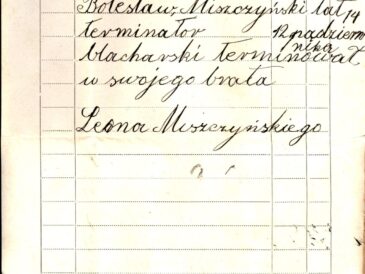 Bolesław Miszczyński lat 74
terminator 12 padziernika
blacharski terminował
w swojego brata
Leona Miszczyńskiego